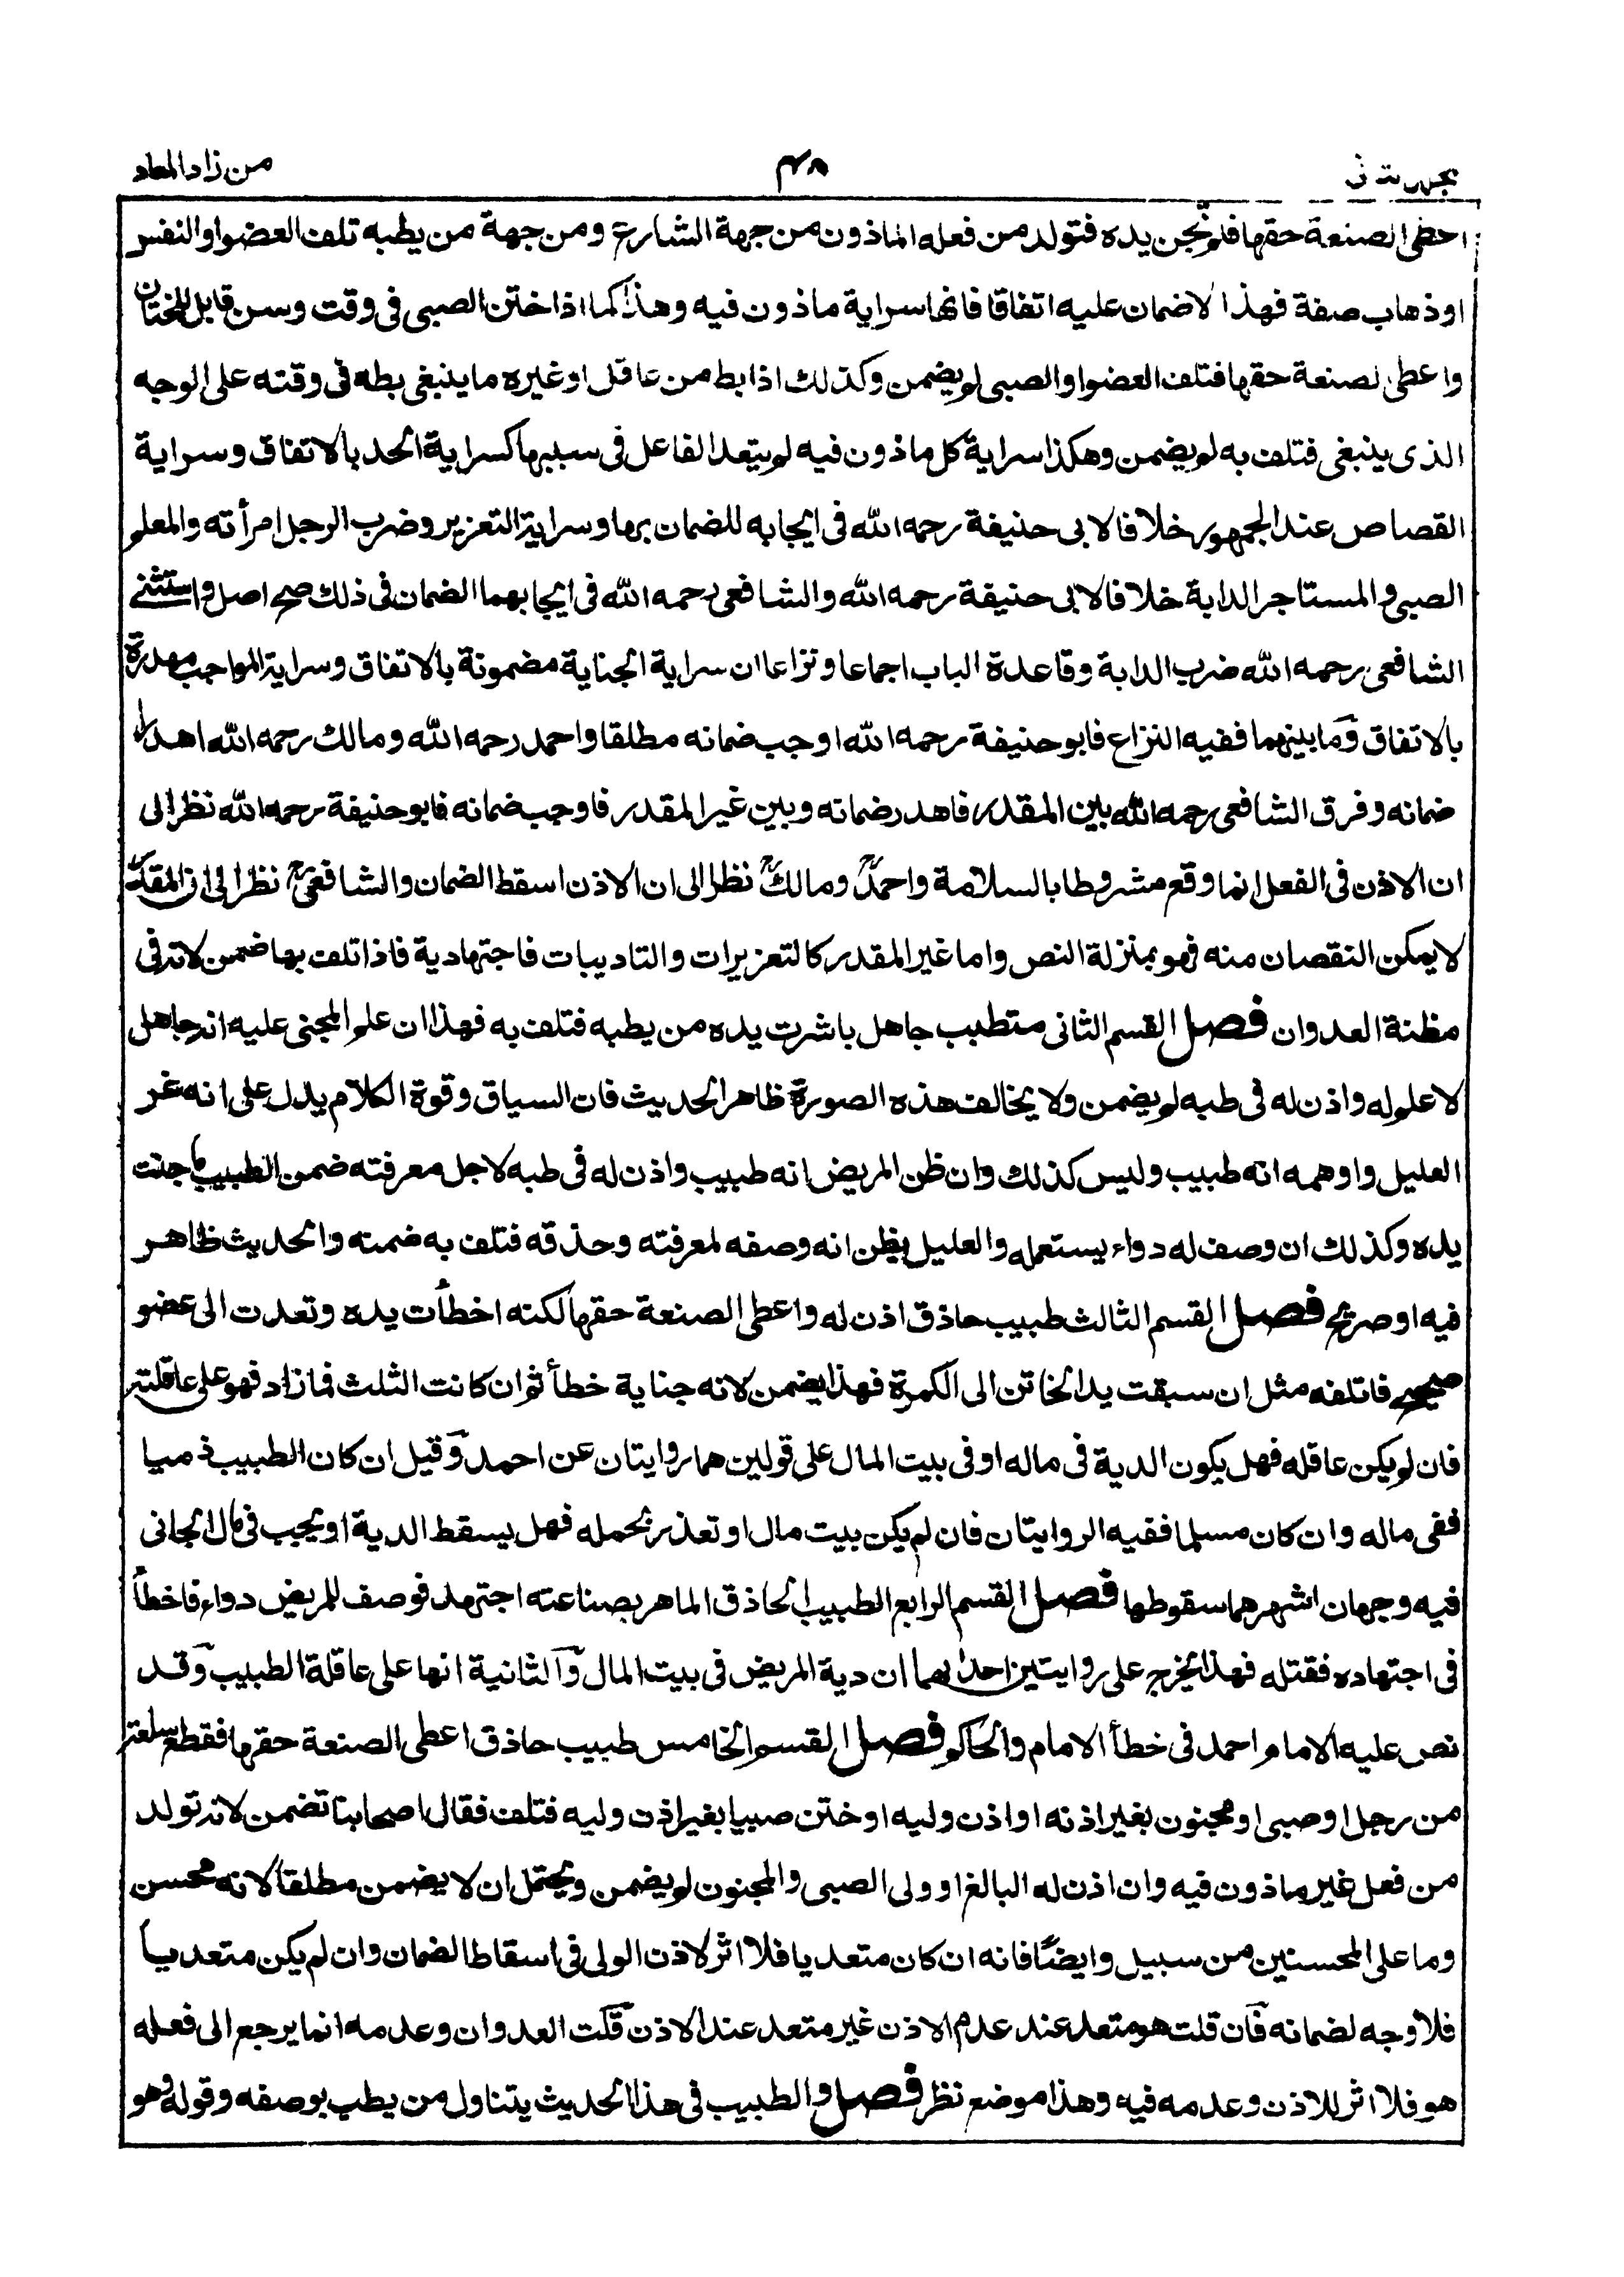 من زاد المعاد
اعطى الصنعة حقها فلم تجن يده فتولد من فعله الماذون من جهة الشارع ومن جهة من يطبه تلف العضو او النفس
او ذهاب صفة فهذا لا ضمان عليه اتفاقا فانها سراية ماذون فيه وهذا كما اذا ختن الصبى فى وقت وسن قابل للختان
واعطى الصنعة حقها فتلف العضو او الصبى لم يضمن وكذلك اذا بط من عاقل او غيره ما ينبغى بطه فى وقته على الوجه
الذى ينبغى فتلف به لم يضمن وهكذا سراية كل ماذون فيه لم يتعد الفاعل فى سببها كسراية الحد بالاتفاق وسراية
القصاص عند الجمهور خلافا لابى حنيفة رحمه الله فى ايجابه للضمان بها وسراية التعزير وضرب الرجل امرأته والمعلم
الصبى والمستاجر الدابة خلافا لابى حنيفة رحمه الله والشافعى رحمه الله فى ايجابهما الضمان فى ذلك صح اصل واستثنى
الشافعى رحمه الله ضرب الدابة وقاعدة الباب اجماعا ونزاعا ان سراية الجناية مضمونة بالاتفاق وسراية الواجب مهدرة
بالاتفاق وما بينهما ففيه النزاع فابو حنيفة رحمه الله اوجب ضمانه مطلقا واحمد رحمه الله ومالك رحمه الله اهدرا
ضمانه وفرق الشافعى رحمه الله بين المقدر فاهدر ضمانه وبين غير المقدر فاوجب ضمانه فابو حنيفة رحمه الله نظر الى
ان الاذن فى الفعل انما وقع مشروطا بالسلامة واحمدؒ ومالكؒ نظرا الى ان الاذن اسقط الضمان والشافعىؒ نظر الى ان المقدر
لا يمكن النقصان منه فهو بمنزلة النص واما غير المقدر كالتعزيرات والتاديبات فاجتهادية فاذا تلف بها ضمن لانه فى
مظنة العدوان فصل القسم الثانى متطبب جاهل باشرت يده من يطبه فتلف به فهذا ان علم المجنى عليه انه جاهل
لا علم له واذن له فى طبه لم يضمن ولا يخالف هذه الصورة ظاهر الحديث فان السياق وقوة الكلام يدل على انه غر
العليل واوهمه انه طبيب وليس كذلك وان ظن المريض انه طبيب واذن له فى طبه لاجل معرفته ضمن الطبيب ما جنت
يده وكذلك ان وصف له دواء يستعمله والعليل يظن انه وصفه لمعرفته وحذقه فتلف به ضمنه والحديث ظاهر
فيه او صريح فصل القسم الثالث طبيب حاذق اذن له واعطى الصنعة حقها لكنه اخطأت يده وتعدت الى عضو
صحيح فاتلفه مثل ان سبقت يد الخاتن الى الكمرة فهذا يضمن لانه جناية خطأ ثم ان كانت الثلث فما زاد فهو على عاقلته
فان لم يكن عاقله فهل يكون الدية فى ماله او فى بيت المال على قولين هما روايتان عن احمد وقيل ان كان الطبيب ذميا
ففى ماله وان كان مسلما ففيه الروايتان فان لم يكن بيت مال او تعذر تحمله فهل يسقط الدية او يجب فى مال الجانى
فيه وجهان اشهرهما سقوطها فصل القسم الرابع الطبيب الحاذق الماهر بصناعته اجتهد فوصف للمريض دواء فاخطأ
فى اجتهاده فقتله فهذا يخرج على روايتين احداهما ان دية المريض فى بيت المال والثانية انها على عاقلة الطبيب وقد
نص عليه الامام احمد فى خطأ الامام والحاكم فصل القسم الخامس طبيب حاذق اعطى الصنعة حقها فقطع سلعة
من رجل او صبى او مجنون بغير اذنه او اذن وليه او ختن صبيا بغير اذن وليه فتلف فقال اصحابنا تضمن لانه تولد
من فعل غير ماذون فيه وان اذن له البالغ او ولى الصبى والمجنون لم يضمن ويحتمل ان لا يضمن مطلقا لانه محسن
وما على المحسنين من سبيل وايضا فانه ان كان متعديا فلا اثر لاذن الولى فى اسقاط الضمان وان لم يكن متعديا
فلا وجه لضمانه فان قلت هو متعد عند عدم الاذن غير متعد عند الاذن قلت العدوان وعدمه انما يرجع الى فعله
هو فلا اثر للاذن وعدمه فيه وهذا موضع نظر فصل والطبيب فى هذا الحديث يتناول من يطب بوصفه وقوله وهو